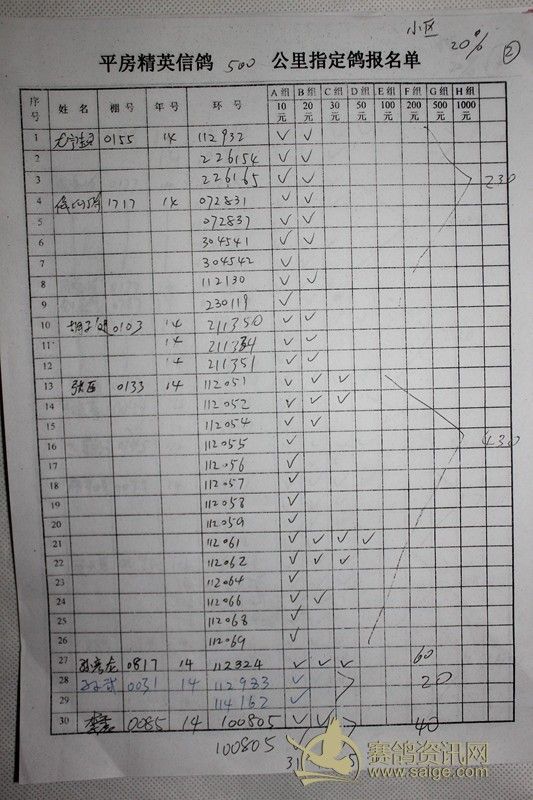 小区
20% ②
平房精英信鸽 500 公里指定鸽报名单
序号 姓名 棚号 年号 环号 A组10元 B组20元 C组30元 D组50元 E组100元 F组200元 G组500元 H组1000元
1 0155 14 112932 ✓ ✓
2 226154 ✓ ✓
3 226165 ✓ ✓ 230
4 1717 14 072831 ✓ ✓
5 072837 ✓ ✓
6 304541 ✓ ✓
7 304542 ✓
8 112130 ✓ ✓
9 230119 ✓
10 0103 14 211350 ✓ ✓
11 14 211334 ✓ ✓
12 14 211351 ✓ ✓
13 0133 14 112051 ✓ ✓ ✓
14 112052 ✓ ✓ ✓
15 112054 ✓ ✓
16 112055 ✓ 430
17 112056 ✓
18 112057 ✓
19 112058 ✓
20 112059 ✓
21 112061 ✓ ✓ ✓ ✓
22 112062 ✓ ✓ ✓
23 112064 ✓
24 112066 ✓ ✓
25 112068 ✓
26 112069 ✓
27 0817 14 112324 ✓ ✓ ✓ 60
28 0031 14 112983 ✓ 20
29 114162 ✓
30 0085 14 100805 ✓ ✓ 40
100805
31 5
赛鸽资讯网
www.saige.com